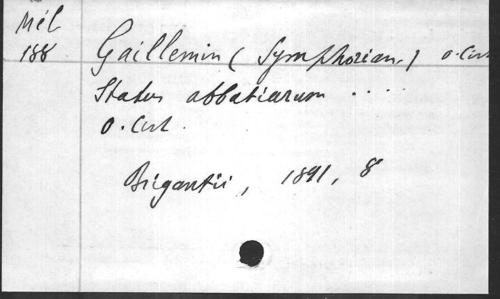 Mél
188
Gaillemin (Symphorian.) O. Cist
Status abbatiarum ....
O. Cist.
Brigantii, 1891, 8